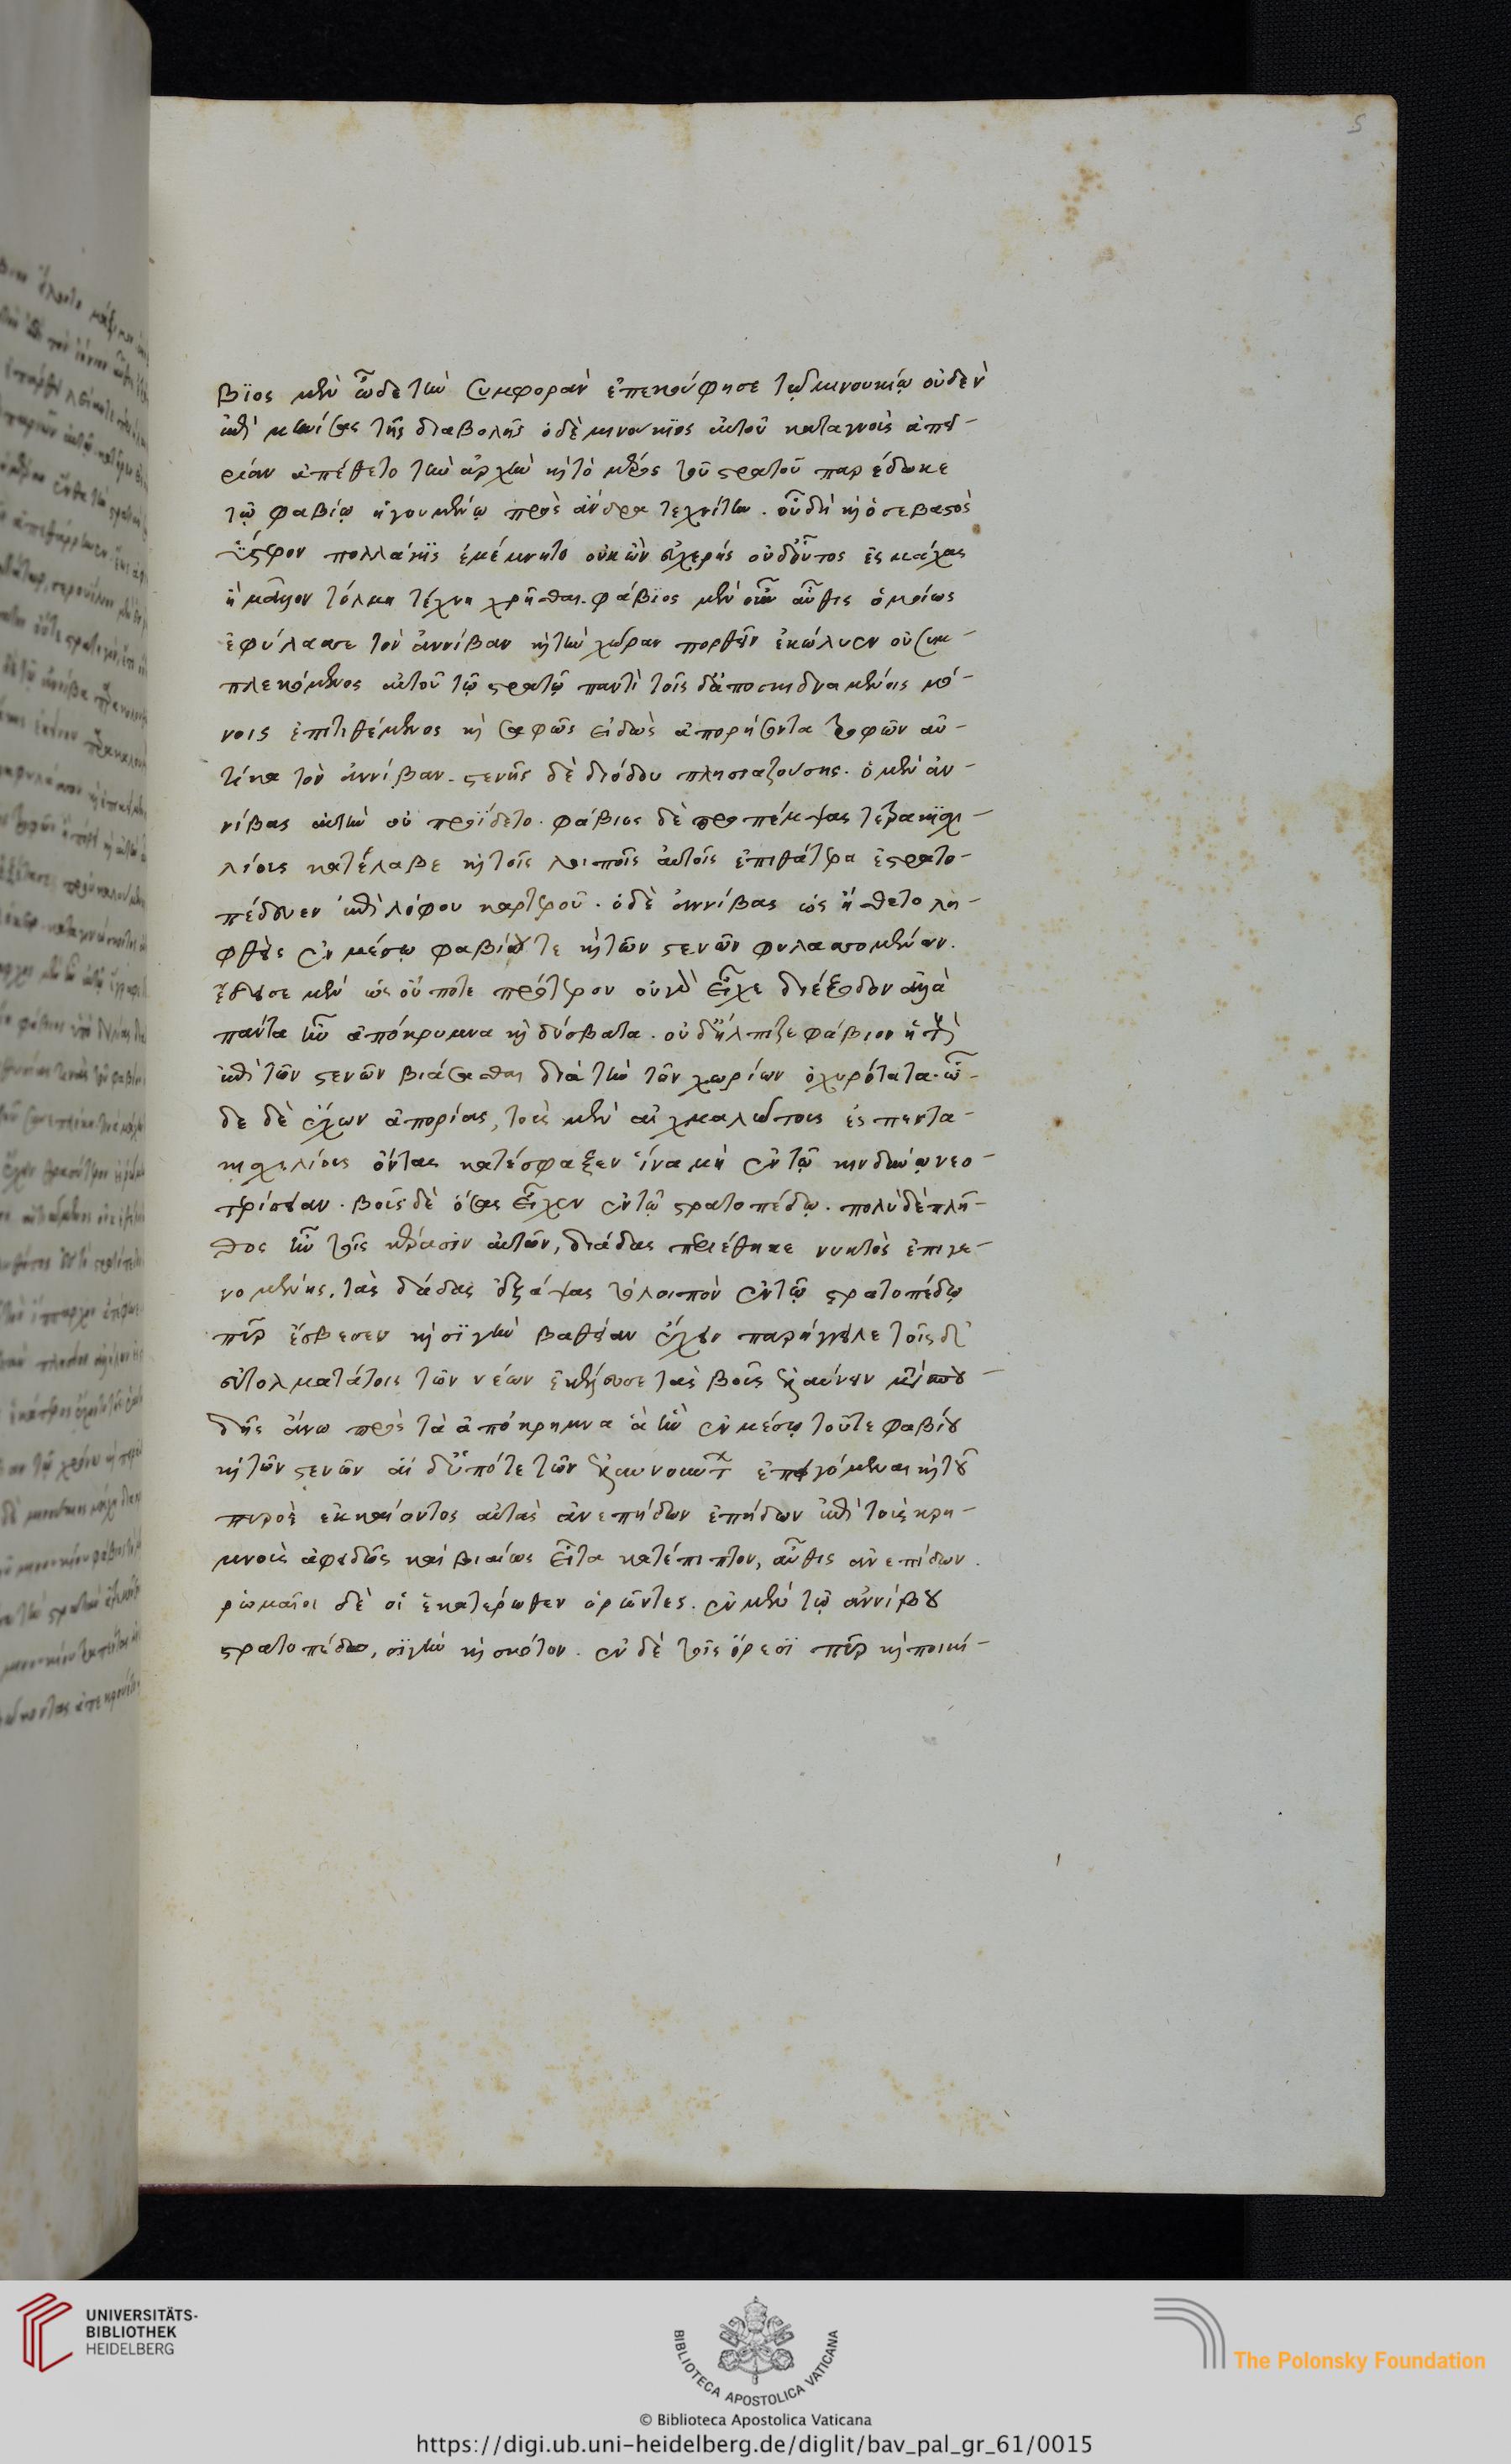 5
βϊος μὲν ὧδε τὴν συμφορὰν ἐπεκούφησε τῷ μινουκίῳ οὐδὲν
ἔτι μηνίσας τῆς διαβολῆς ὁ δὲ μινούκϊος αὑτοῦ καταγνοὺς ἀπει-
ρίαν ἀπέθετο τὴν ἀρχὴν καὶ τὸ μέρος τοῦ στρατοῦ παρέδωκε
τῷ φαβίῳ ἡγουμένῳ πρὸς ἄνδρα τεχνίτην. οὗ δὴ καὶ ὁ σεβαστὸς
ὕστερον πολλάκϊς ἐμέμνητο οὐκ ὢν εὐχερὴς οὐδ' οὗτος ἐς μάχας
ἢ μᾶλλον τόλμη τέχνη χρῆσθαι. φάβϊος μὲν οὖν αὖθις ὁμοίως
ἐφύλασσε τὸν ἀννίβαν καὶ τὴν χώραν πορθεῖν ἐκώλυεν οὐ συμ-
πλεκόμενος αὐτοῦ τῷ στρατῷ παντὶ τοῖς δ' ἀποσκιδναμένοις μό-
νοις ἐπιτιθέμενος καὶ σαφῶς εἰδὼς ἀπορήσοντα τροφῶν αὐ-
τίκα τὸν ἀννίβαν. στενῆς δὲ διόδου πλησιαζούσης. ὁ μὲν ἀν-
νίβας αὐτὴν οὐ προΐδετο. φάβιος δὲ προπέμψας τετρακϊσχι-
λίους κατέλαβε καὶ τοῖς λοιποῖς αὐτοῖς ἐπιθάτερα ἐστρατο-
πέδευεν ἐπὶ λόφου καρτεροῦ. ὁ δὲ ἀννίβας ὡς ᾔσθετο λη-
φθεὶς ἐν μέσῳ φαβίου τε καὶ τῶν στενῶν φυλασσομένων.
ἔδεισε μὲν ὡς οὔποτε πρότερον οὐ γὰρ εἶχε διέξοδον ἀλλὰ
πάντα ἦν ἀπόκρυμνα καὶ δύσβατα. οὐδ' ἤλπιζε φάβιον ἢ τοὺς
ἐπὶ τῶν στενῶν βιάσασθαι διὰ τὴν τῶν χωρίων ὀχυρότατα. ὧ-
δε δὲ ἔχων ἀπορίας, τοὺς μὲν αἰχμαλώτους ἐς πεντα-
κισχιλίους ὄντας κατέσφαξεν ἵνα μὴ ἐν τῷ κινδύνῳ νεο-
τρίσειαν. βοῦς δὲ ὅσας εἶχεν ἐν τῷ στρατοπέδῳ. πολὺ δὲ πλῆ-
θος ἦν τοῖς κέρασιν αὐτῶν, διάδας περιέθηκε νυκτὸς ἐπιγε-
νομένης, τὰς διάδας ἐξάψας τὸ λοιπὸν ἐν τῷ στρατοπέδῳ
πῦρ ἔσβεσεν καὶ σϊγὴν βαθεῖαν ἔχειν παρήγγειλε τοῖς δ'
εὐτολματάτοις τῶν νέων ἐκέλευσε τὰς βοῦς ἐλαύνειν μετὰ σπου-
δῆς ἄνω πρὸς τὰ ἀπόκρημνα ἃ ἦν ἐν μέσῳ τοῦ τε φαβίου
καὶ τῶν στενῶν αἱ δ' ὑπό τε τῶν ἐλαυνόντων ἐπειγόμεναι καὶ τοῦ
πυρὸς ἐκκαίοντος αὐτὰς ἀνεπήδων ἐπήδων ἐπὶ τοὺς κρη-
μνοὺς ἀφειδῶς καὶ βιαίως εἶτα κατέπιπτον, αὖθις ἀνεπήδων.
ῥωμαῖοι δὲ οἱ ἑκατέρωθεν ὁρῶντες. ἐν μὲν τῷ ἀννίβου
στρατοπέδῳ, σϊγὴν καὶ σκότον. ἐν δὲ τοῖς ὄρεσϊ πῦρ καὶ ποικί-
UNIVERSITÄTS-
BIBLIOTHEK
HEIDELBERG
BIBLIOTECA APOSTOLICA VATICANA
The Polonsky Foundation
© Biblioteca Apostolica Vaticana
https://digi.ub.uni-heidelberg.de/diglit/bav_pal_gr_61/0015